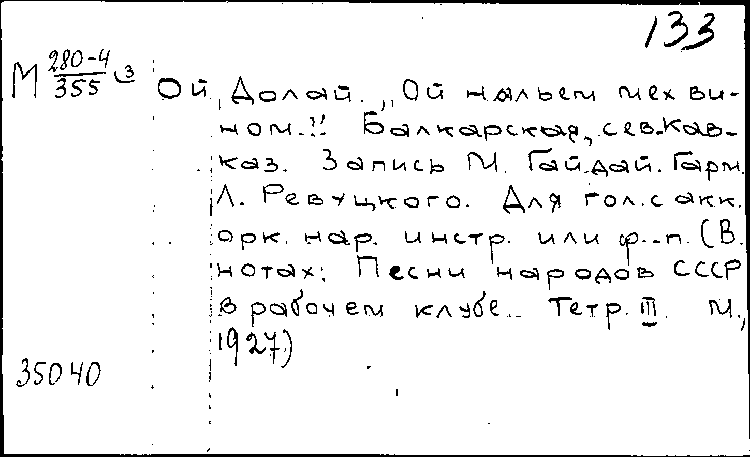 133
М 280-4/355 3
Ой, Долай. „Ой нальем мех ви-
ном..." Балкарская, сев-Кав-
каз. Запись М. Гайдай. Гарм.
Л. Ревуцкого. Для гол. с акк.
орк. нар. инстр. или ф.-п. (В.
нотах: Песни народов СССР
в рабочем клубе.. Тетр. III. М.,
1927)
35040